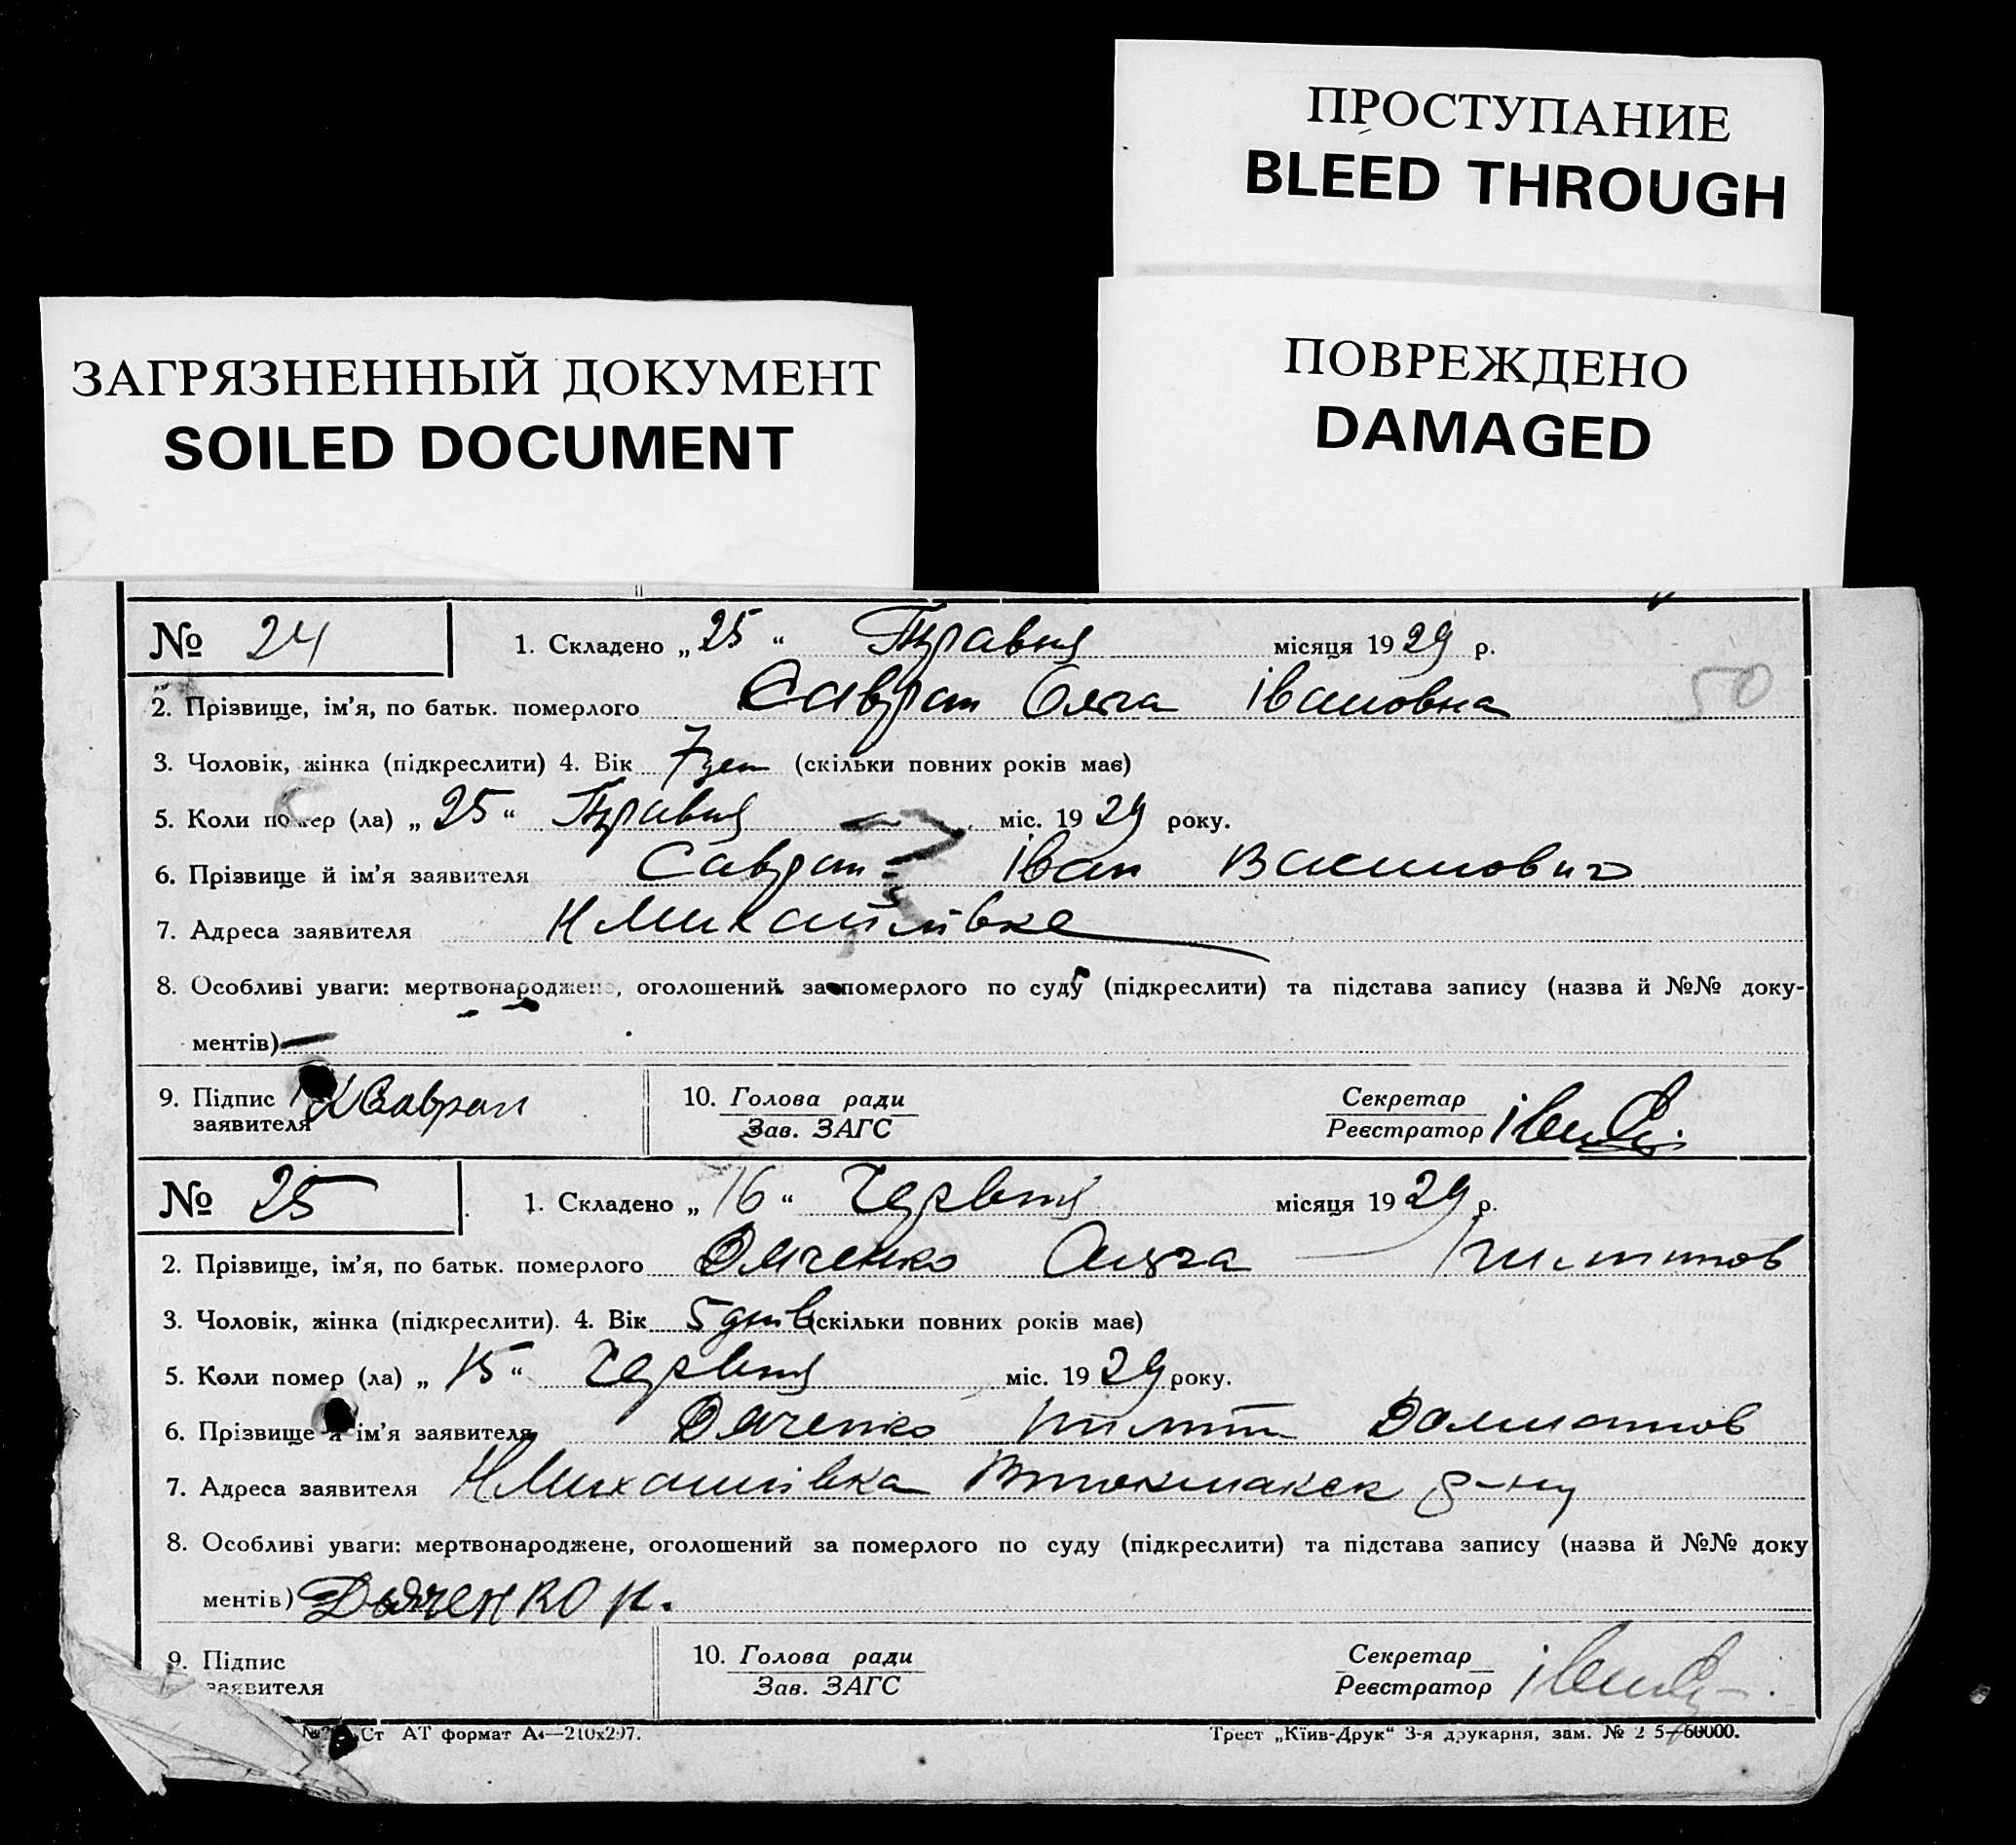 ПРОСТУПАНИЕ
BLEED THROUGH
ЗАГРЯЗНЕННЫЙ ДОКУМЕНТ
SOILED DOCUMENT
ПОВРЕЖДЕНО
DAMAGED
№ 24
1. Складено „ 25 “ Травня місяця 1929 р.
50
2. Прізвище, ім’я, по батьк. померлого Савран Ольга Івановна
3. Чоловік, жінка (підкреслити) 4. Вік 7 ден (скільки повних років має)
5. Коли помер (ла) „ 25 “ Травня міс. 1929 року.
6. Прізвище й ім’я заявителя Савран Іван
7. Адреса заявителя Н Михайлівка
8. Особливі уваги: мертвонароджене, оголошений за померлого по суду (підкреслити) та підстава запису (назва й №№ доку-
ментів)
9. Підпис заявителя Савран
10. Голова ради
Зав. ЗАГС
Секретар
Реєстратор
№ 25
1. Складено „ 16 “ Червня місяця 1929 р.
2. Прізвище, ім’я, по батьк. померлого Дяченко Ольга
3. Чоловік, жінка (підкреслити). 4. Вік 5 днів (скільки повних років має)
5. Коли помер (ла) „ 15 “ Червня міс. 1929 року.
6. Прізвище й ім’я заявителя Дяченко
7. Адреса заявителя Н Михайлівка р-ну
8. Особливі уваги: мертвонароджене, оголошений за померлого по суду (підкреслити) та підстава запису (назва й №№ доку
ментів) Дьяченко
9. Підпис
заявителя
10. Голова ради
Зав. ЗАГС
Секретар
Реєстратор
Ст АТ формат А4—210х297.
Трест „Київ-Друк“ 3-я друкарня, зам. №